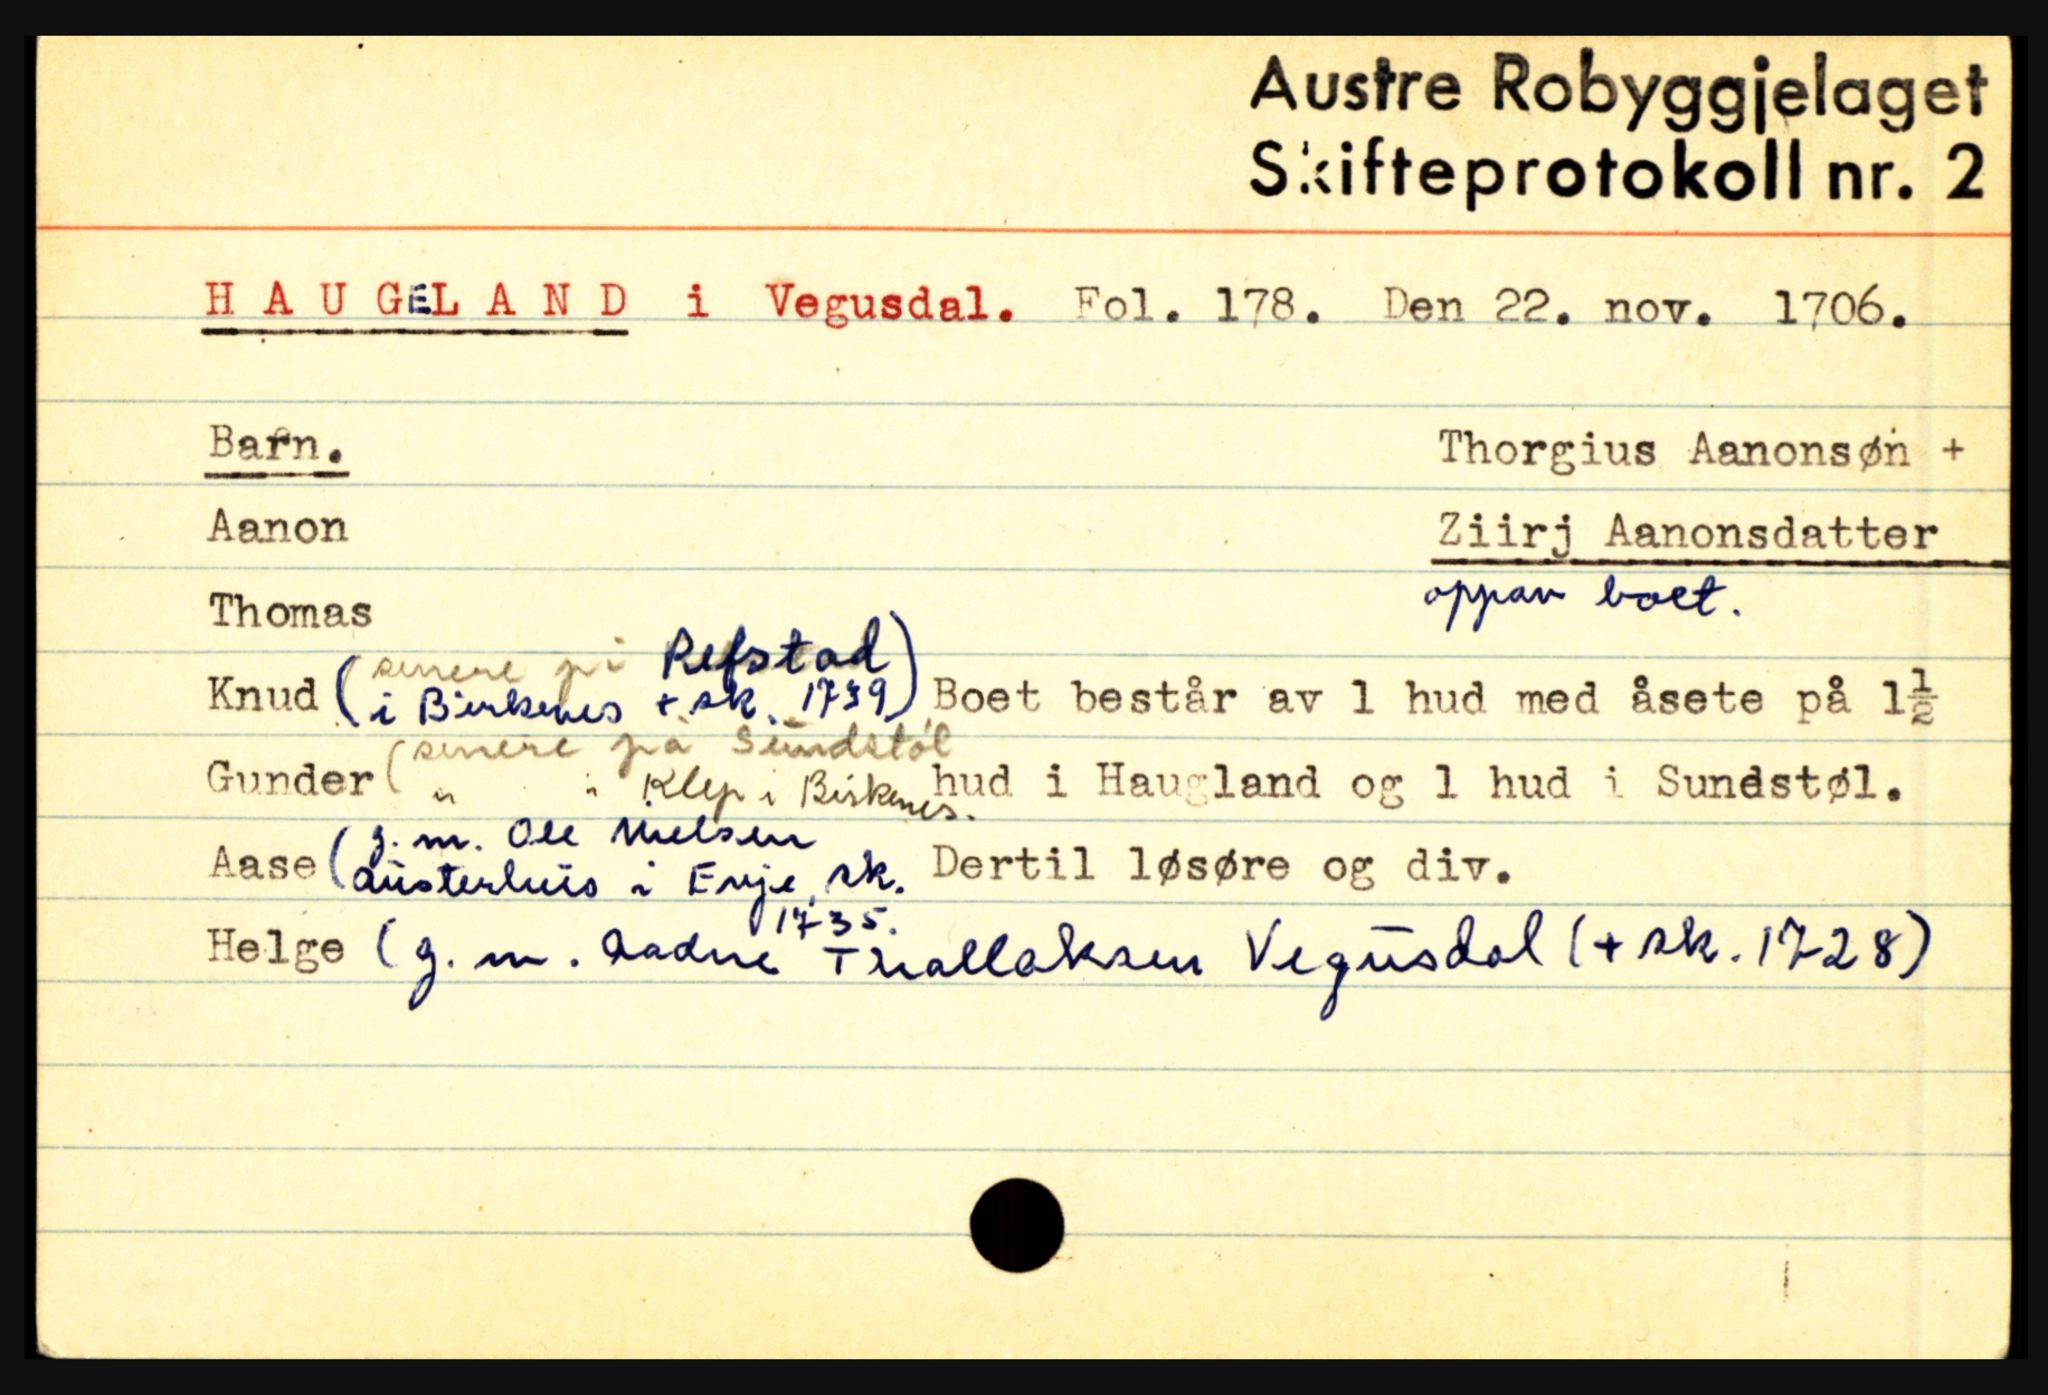 Austre Robyggjelaget
Skifteprotokoll nr. 2
HAUGELAND i Vegusdal. Fol. 178. Den 22. nov. 1706.
Barn.
Thorgius Aanonsøn +
Aanon
Ziirj Aanonsdatter
oppav boet.
Thomas
Knud (senere på Refstad
i Birkenes + sk. 1739)
Boet består av 1 hud med åsete på 1½
Gunder (senere på Sundstøl
" " Klep i Birkenes.
hud i Haugland og 1 hud i Sundstøl.
Aase (g. m. Ole Nielsen
Austerhus i Evje, sk.
1735.
Dertil løsøre og div.
Helge (g. m. Aadne Thallaksen Vegusdal (+ sk. 1728)